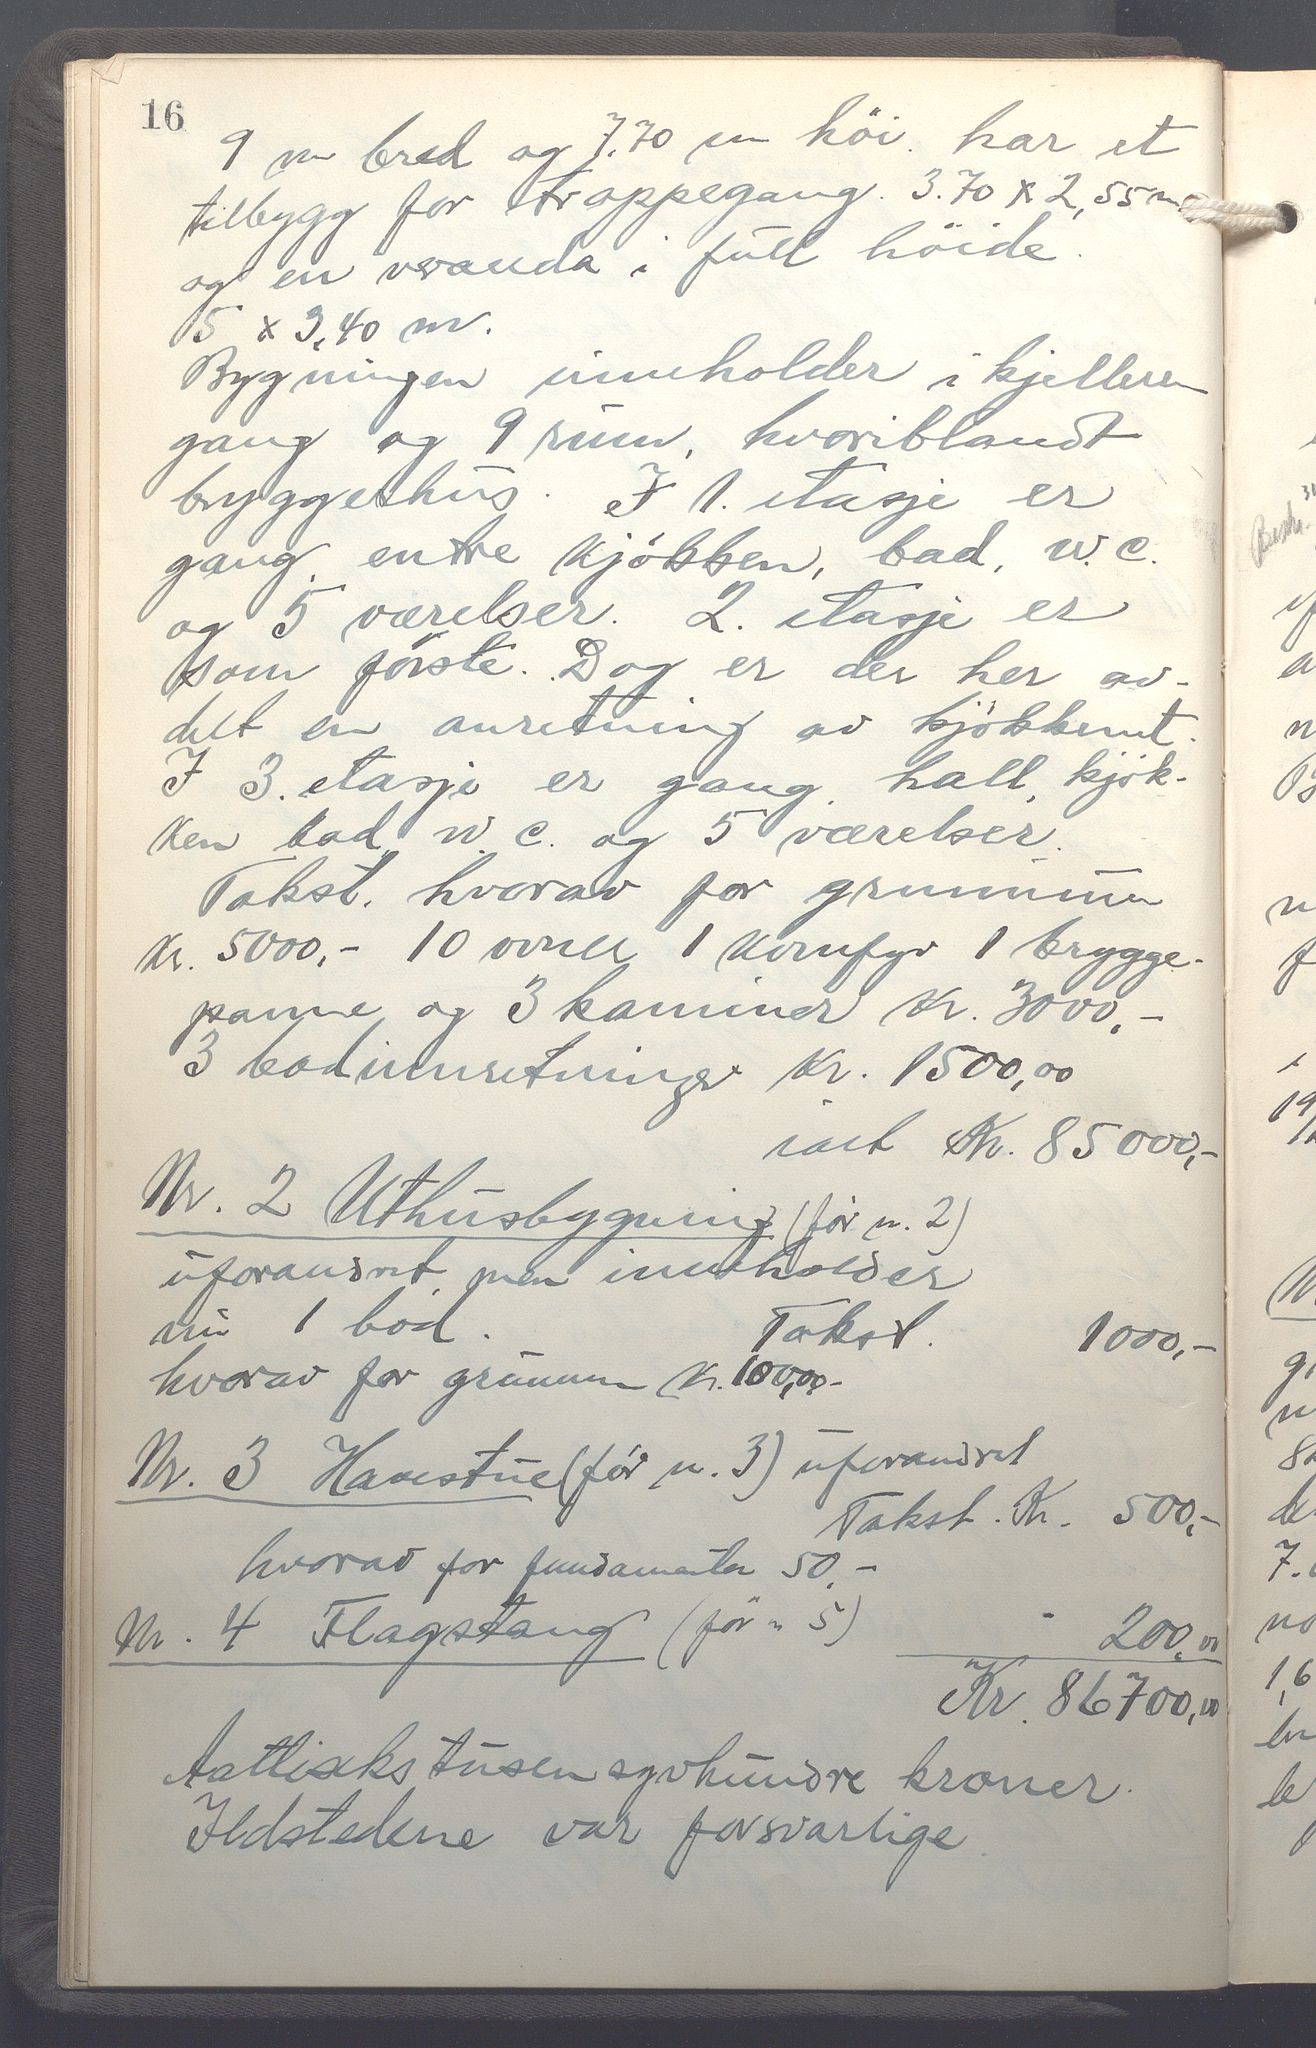 16
9 m bred og 7.70 m höi. har et
tilbygg for trappegang. 3.70 x 2,55 m
og en veranda i full höide.
5 x 3,40 m.
Bygningen inneholder i kjelleren
gang og 9 rum, hvoriblandt
bryggerhus. I 1. etasje er
gang, entre kjökken, bad, w.c.
og 5 værelser. 2. etasje er
som förste. Dog er der her av-
delt en anretning av kjökkenet.
I 3. etasje er gang, hall, kjök-
ken bad, w.c. og 5 værelser.
Takst. hvorav for grunnmuren
Kr. 5000,- 10 ovner 1 komfyr 1 brygge-
panne og 3 kaminer Kr. 3000,-
3 badinnretninger Kr. 1500,00
ialt Kr. 85000,-
Nr. 2 Uthusbygning (før n. 2)
uforandret, men inneholder
nu 1 bod. Takst. 1000,-
hvorav for grunnmur Kr. 100,00-
Nr. 3 Havestue (för n. 3) uforandret
Takst. Kr. 500,-
hvorav for fundamenter 50,-
Nr. 4 Flagstang (för n 5) - 200,00
Kr. 86700,00
Aattiseks tusen syvhundre kroner.
Ildstedene var forsvarlige